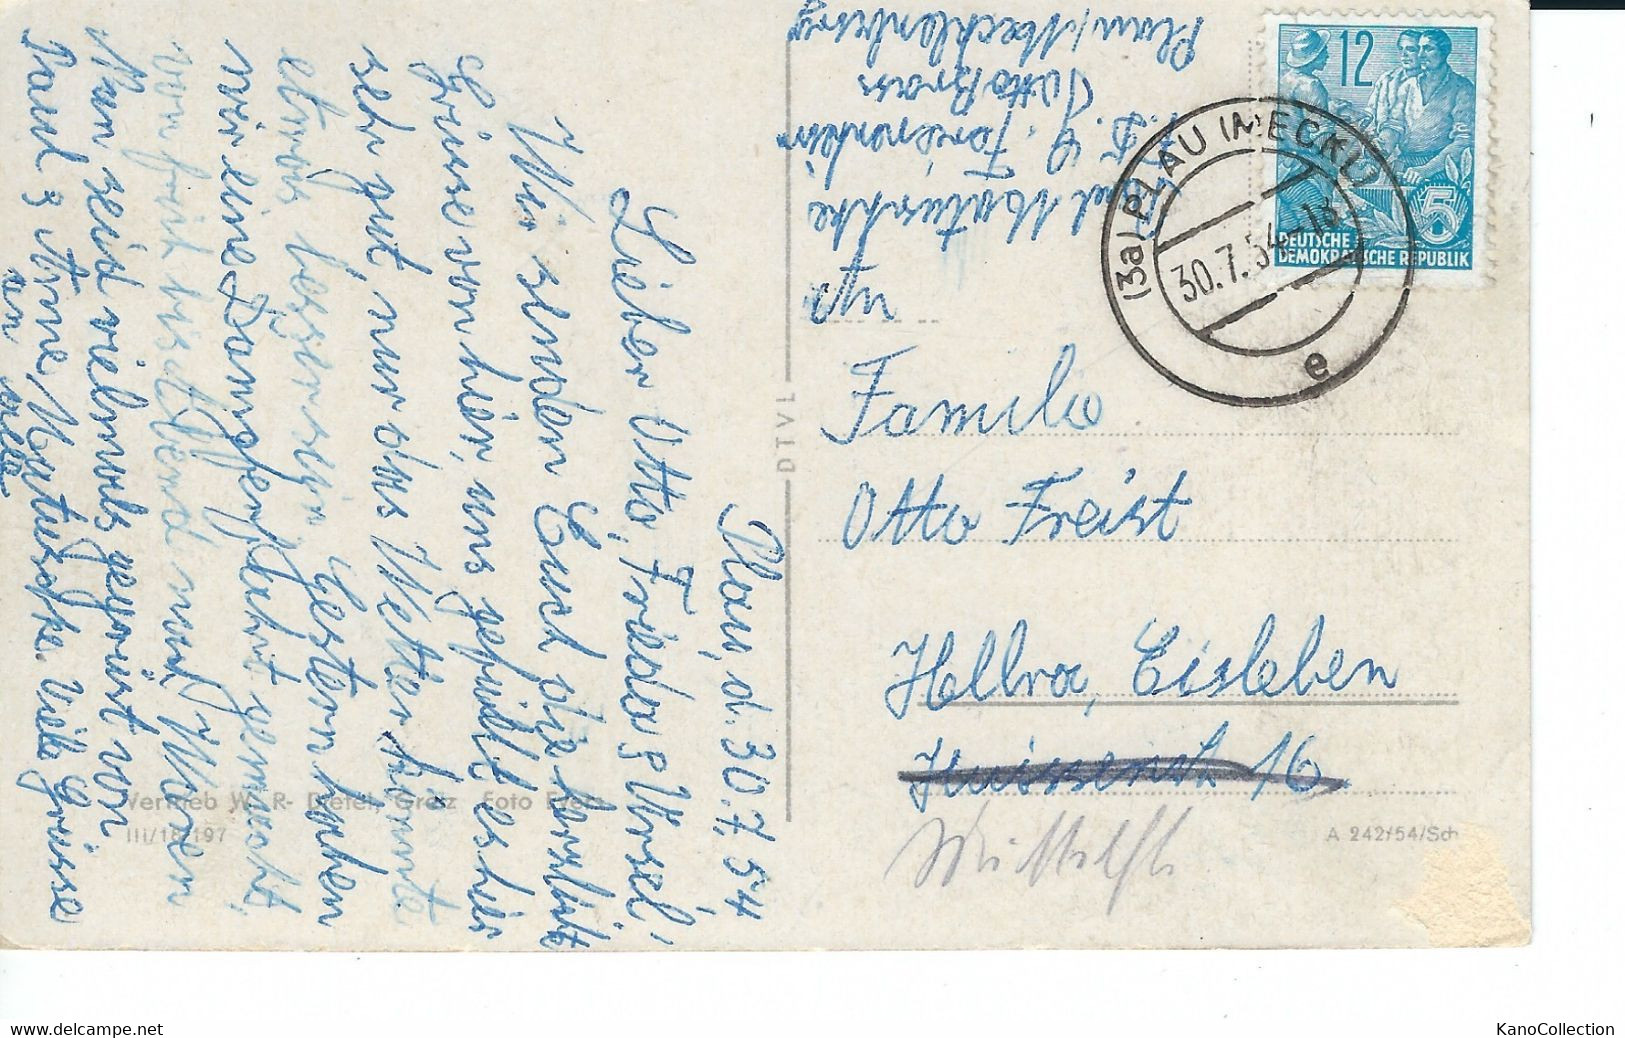 Plau, d. 30.7.54
Lieber Otto, Frieda & Ursel!
Wir senden Euch die herzlichst
Grüsse von hier, uns gefällt es hier
sehr gut, nur das Wetter könnte
etwas besser sein. Gestern haben
wir eine Dampferfahrt gemacht,
von früh bis abend nach Waren
Nun seid vielmals gegrüsst von
Paul & Anne Matuschke. Viele Grüsse
an alle
Paul Matuschke
F.D.G. Ferienheim
Otto Brass
Plau/Mecklenburg
An
Familie
Otto Freist
Helbra, Eisleben
16
12
DEUTSCHE
DEMOKRATISCHE REPUBLIK
5
(3a) PLAU (MECKL)
30.7.54-18
e
DTVL
Vertrieb W. R- Dietel, Greiz Foto Evers
III/18/197
A 242/54/Sch
KanoCollection